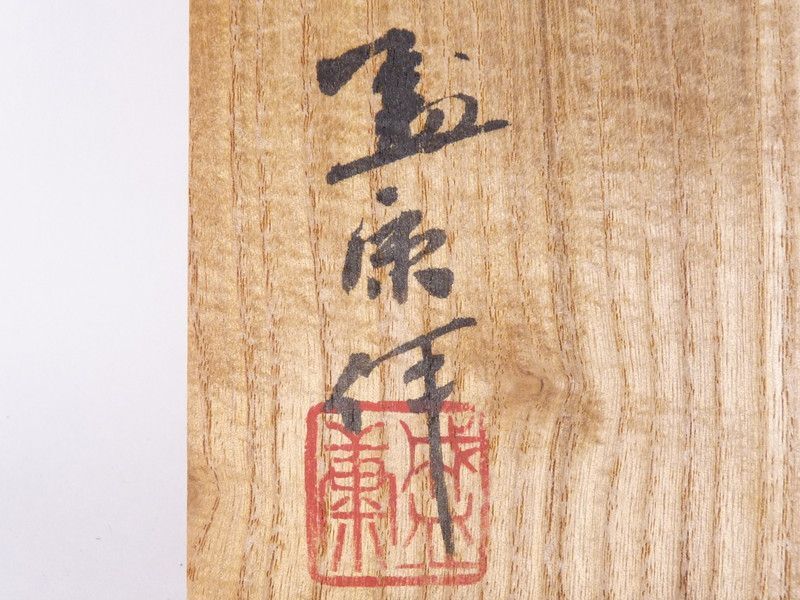 盛康作
盛康